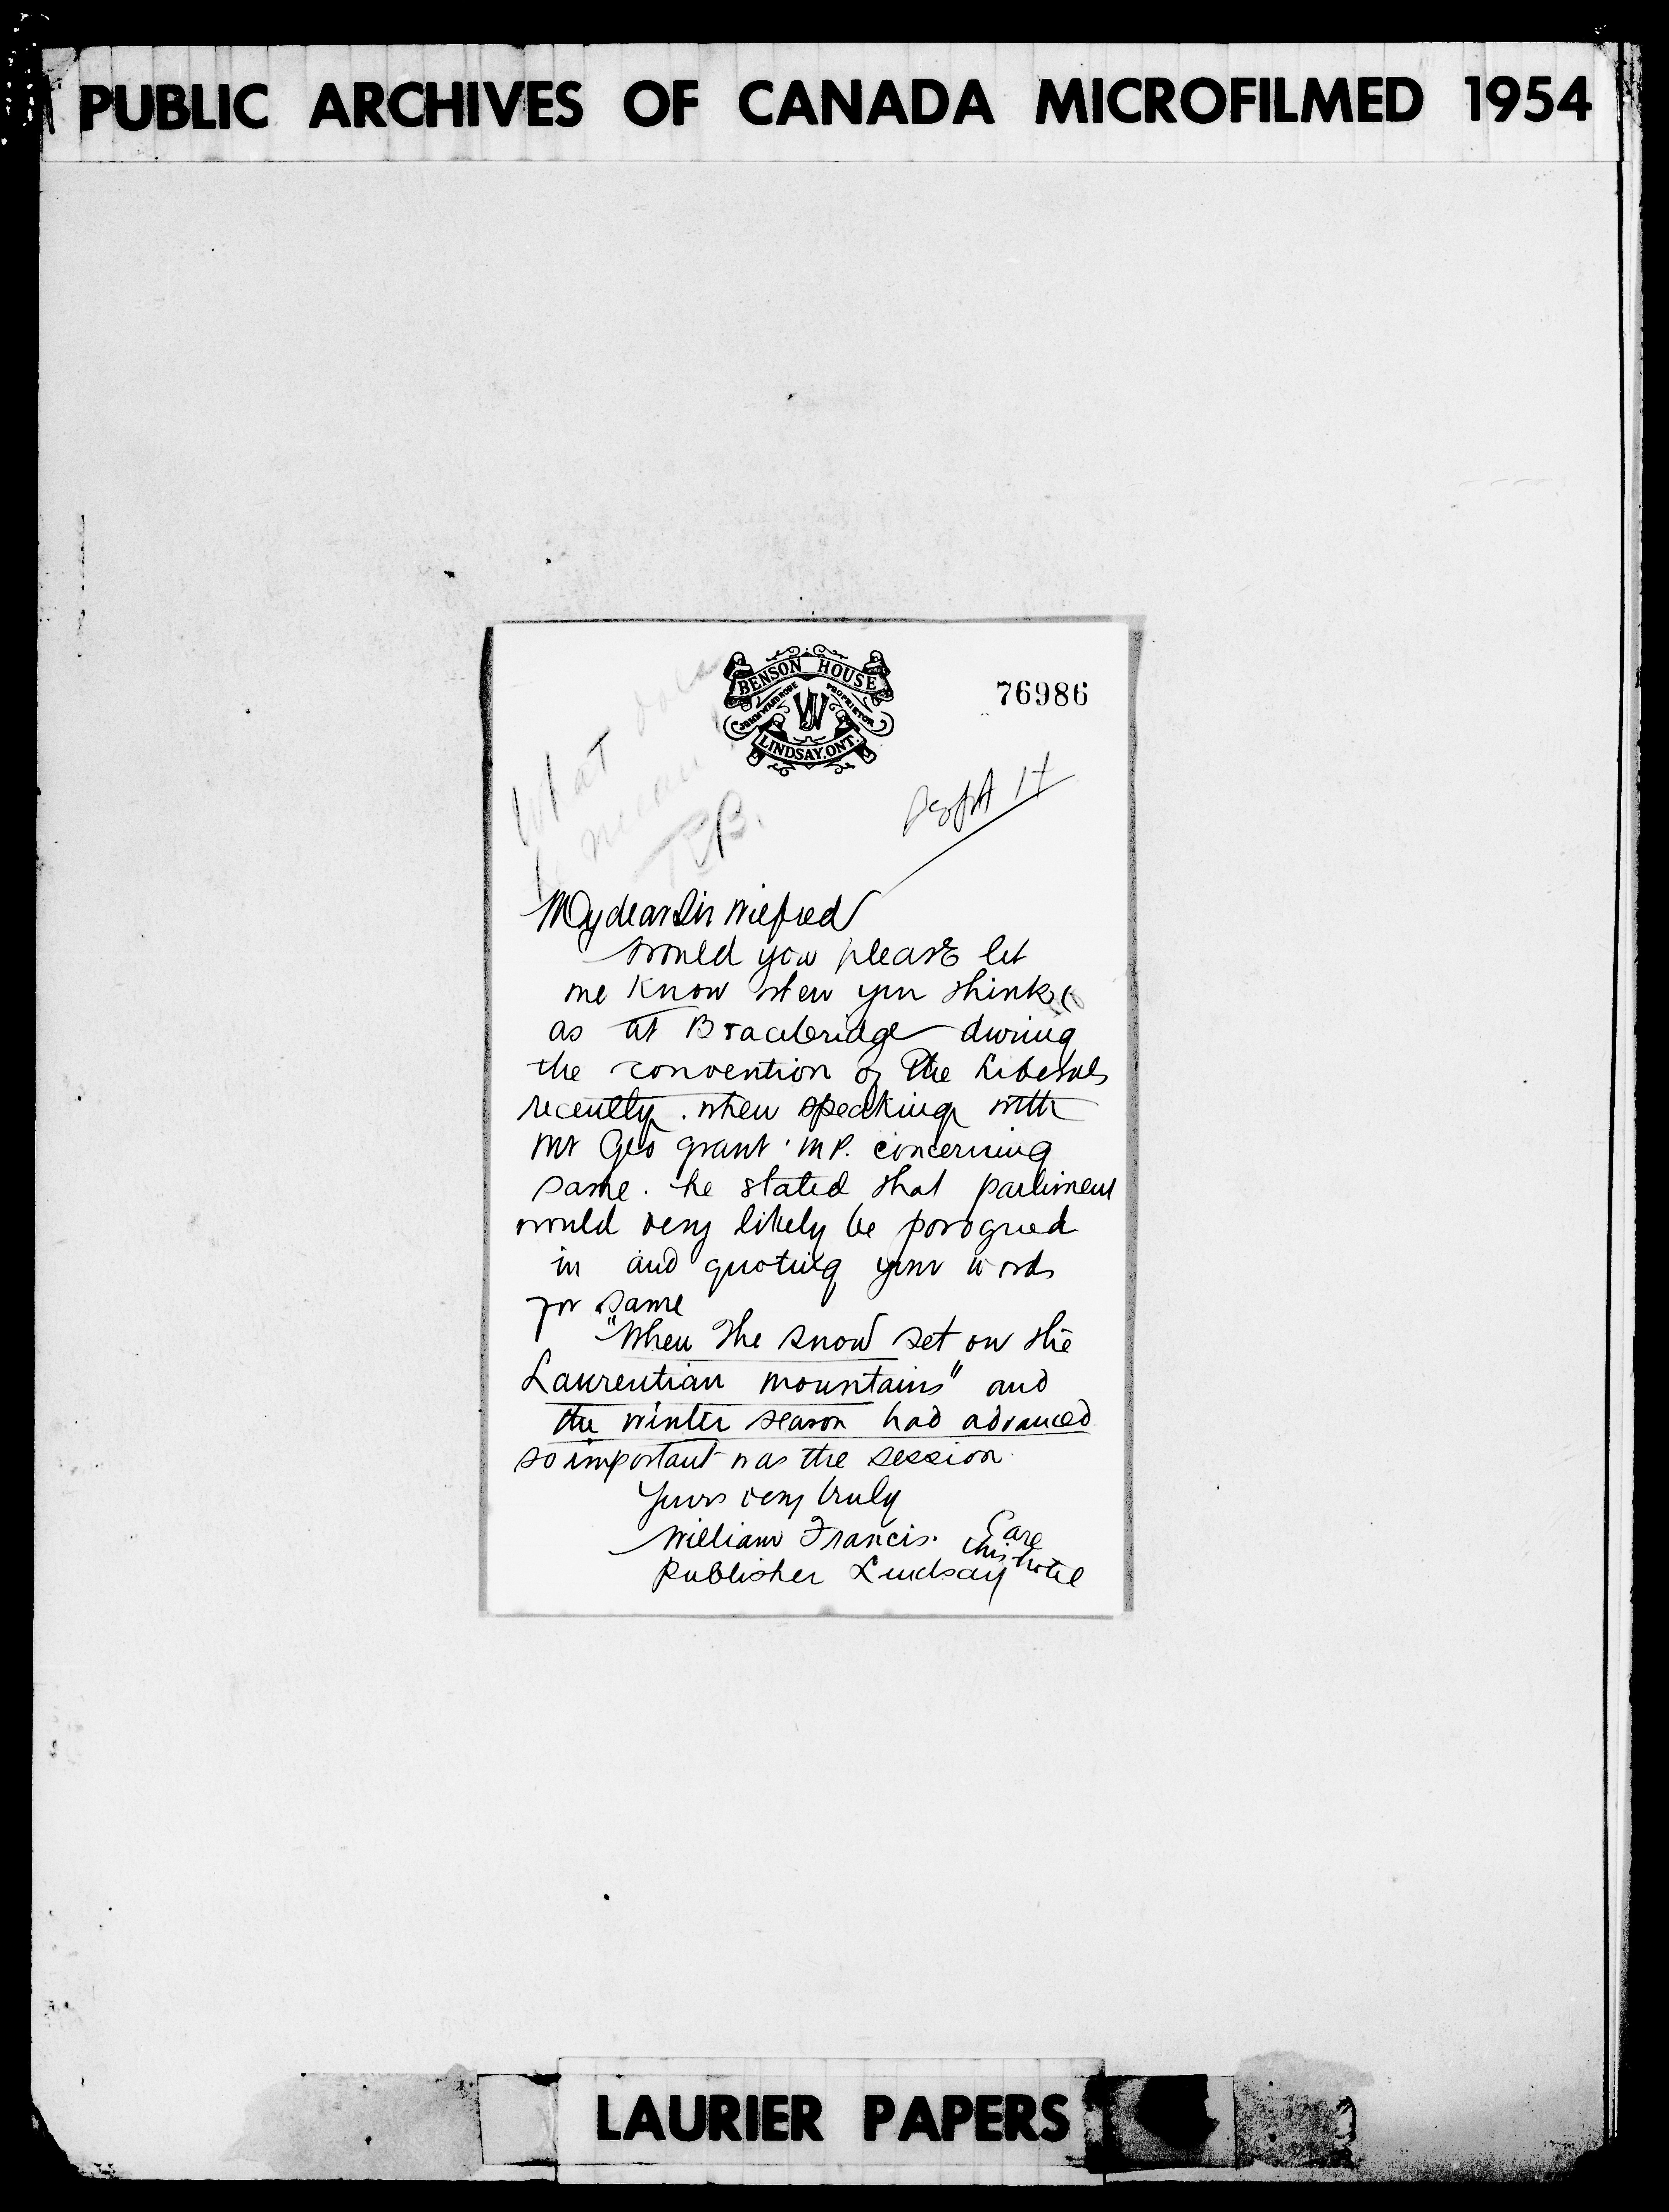 PUBLIC ARCHIVES OF CANADA MICROFILMED 1954
BENSON HOUSE
JOHN WARDROBE PROPRIETOR
LINDSAY, ONT.
76986
What does
he mean
Sept 17
My dear Sir Wilfred
Would you please let
me know when you think
as at Bracebridge during
the convention of the Liberals
recently. when speaking with
Mr Geo Grant. M.P. concerning
same. he stated that parliment
would very likely be porogued
in and quoting your words
for same
"When the snow set on the
Laurentian mountains" and
the winter season had advanced
so important was the session.
Yours very truly
William Francis. Care
this hotel
Publisher Lindsay
LAURIER PAPERS